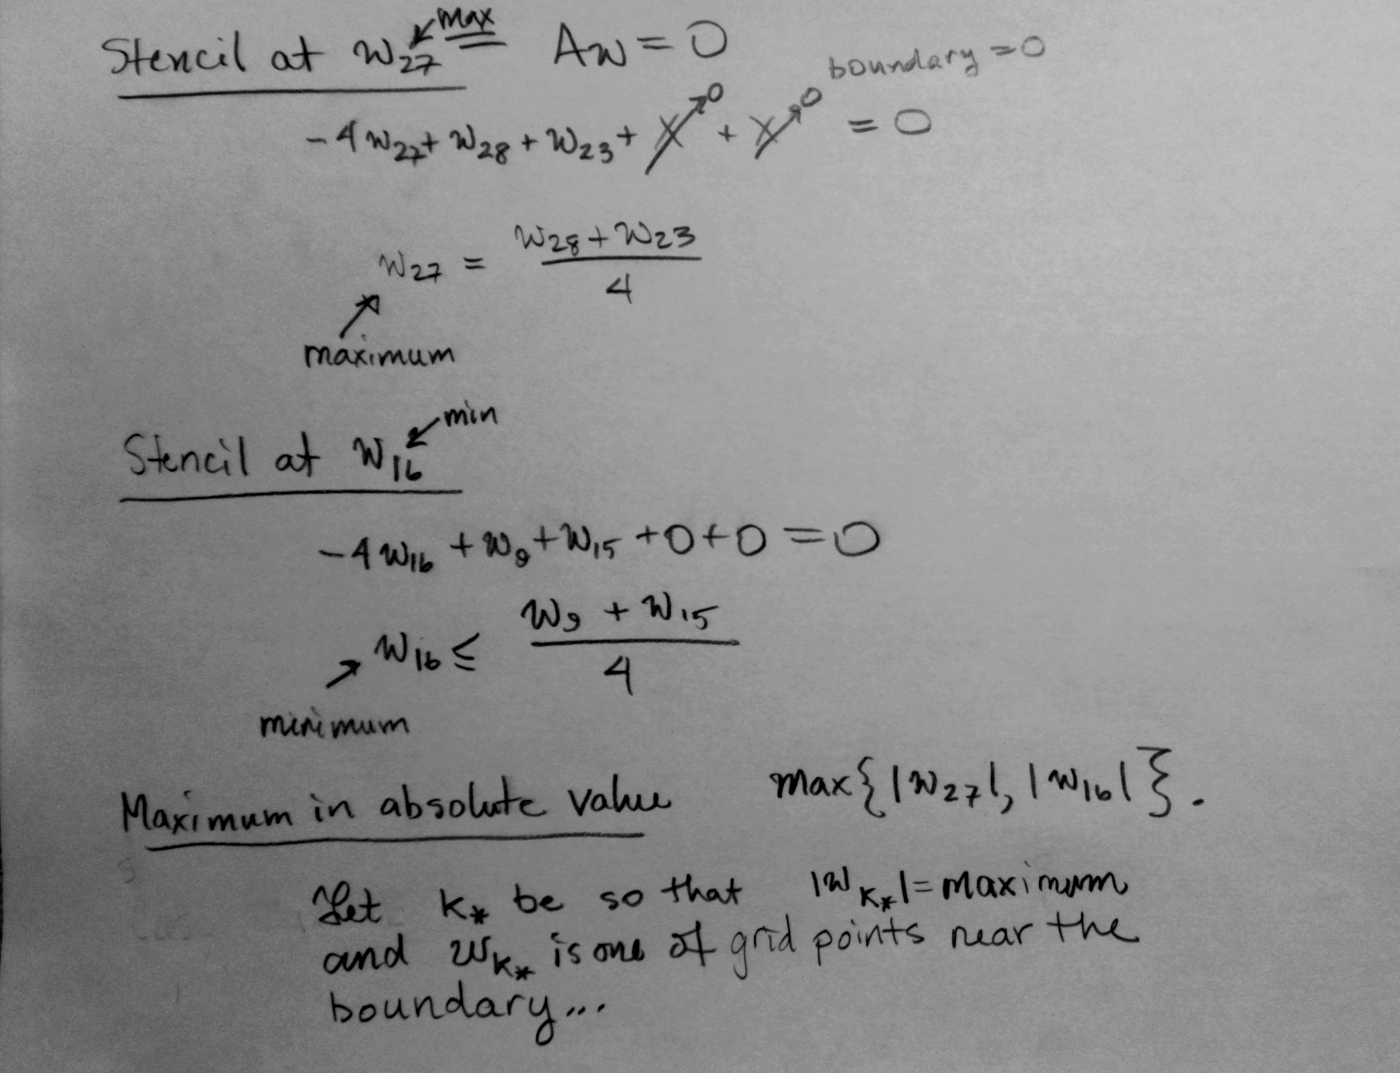 Stencil at w₂₇ ↙ max Aw = 0
boundary = 0
-4w₂₇ + w₂₈ + w₂₃ + X↗0 + X↗0 = 0
w₂₇ = (w₂₈ + w₂₃)/4
↗
maximum
Stencil at w₁₆ ↙ min
-4w₁₆ + w₉ + w₁₅ + 0 + 0 = 0
w₁₆ ≤ (w₉ + w₁₅)/4
↗
minimum
Maximum in absolute value max{|w₂₇|, |w₁₆|}.
Let k* be so that |w_k*| = maximum
and w_k* is one of grid points near the
boundary...